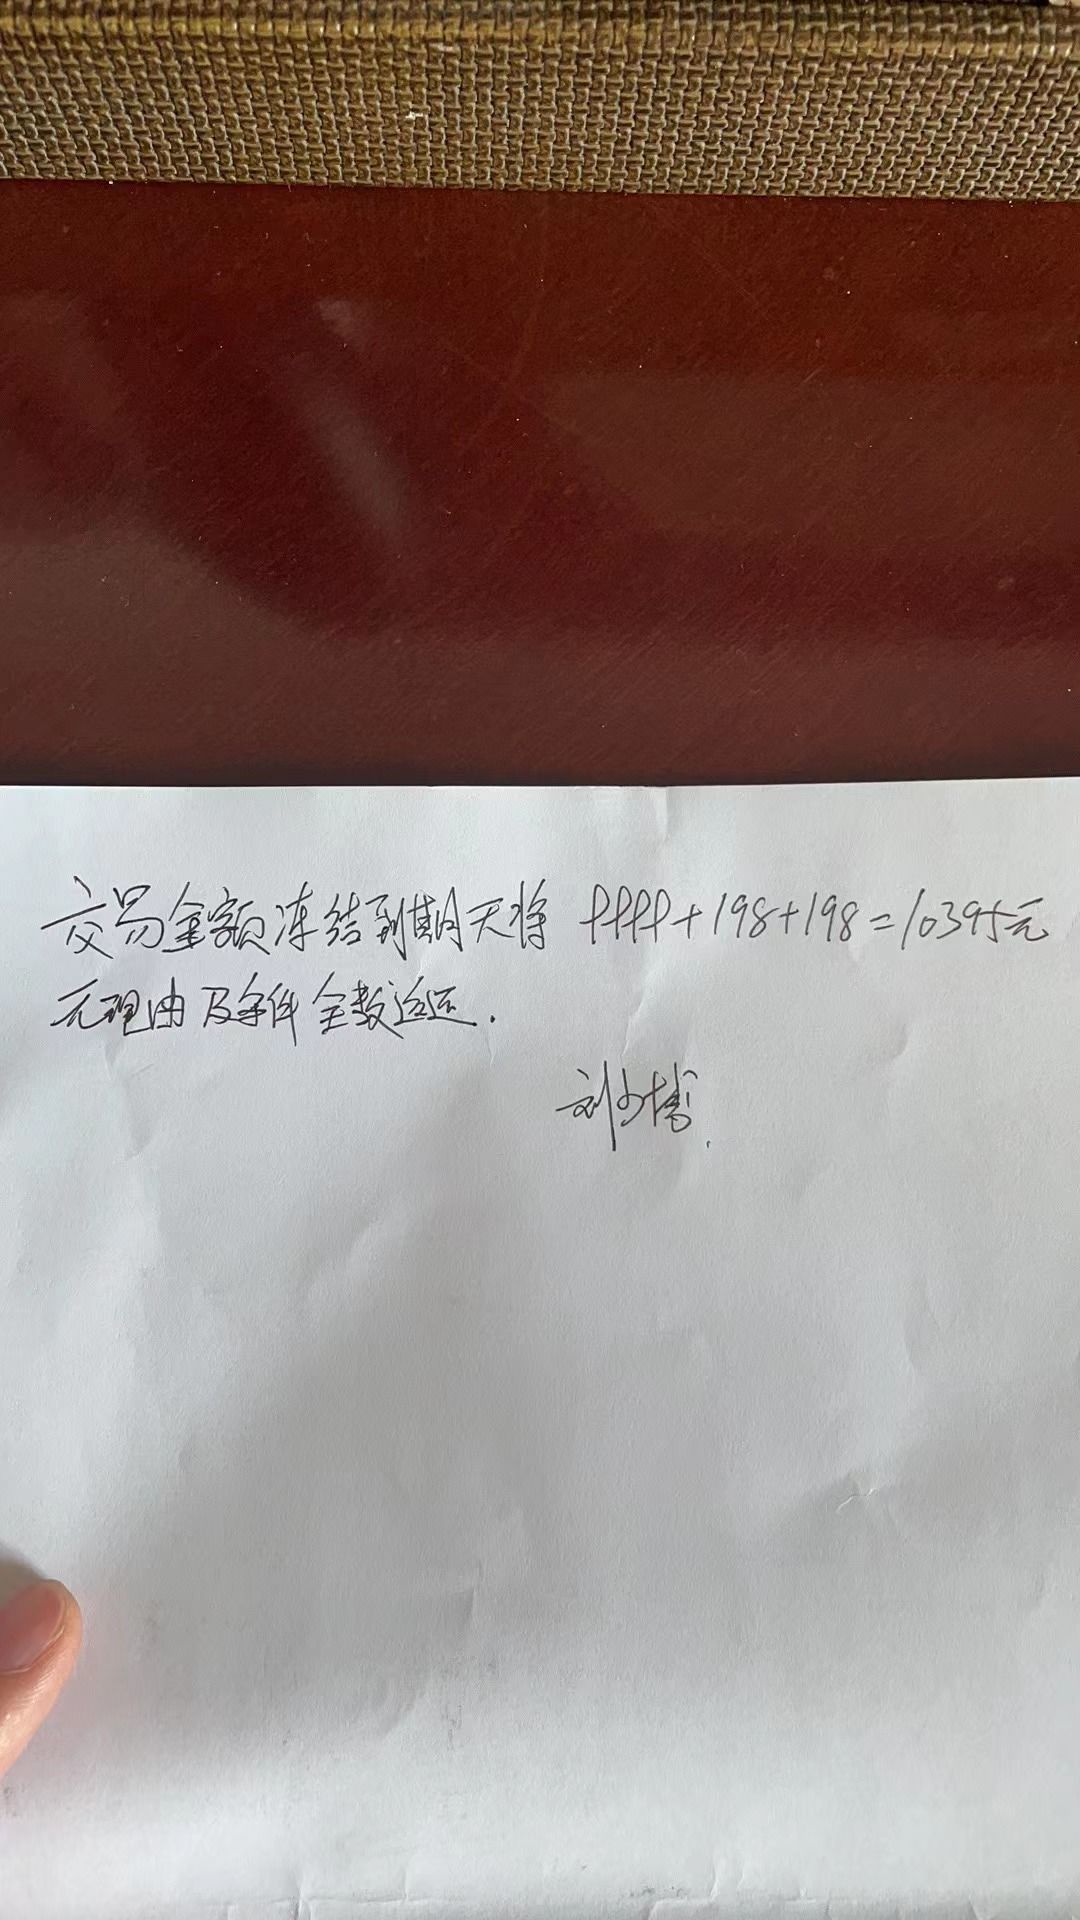 交易金额冻结到期天将 9999+198+198=10395元
无理由及条件全数返还.
刘少博